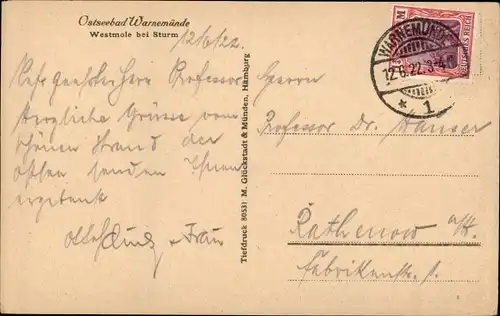 Ostseebad Warnemünde
Westmole bei Sturm
12/6/22.
Sehr geehrter Herr Professor
Herzliche Grüsse vom
schönen Strand der
Ostsee senden Ihnen
ergebenst
u. Frau
Tiefdruck 80531 M. Glückstadt & Münden, Hamburg
WARNEMÜNDE
12.6.22. 3-4 N
* 1
DEUTSCHES REICH
Herrn
Professor Dr.
Rathenow a/H.
Fabrikenstr.